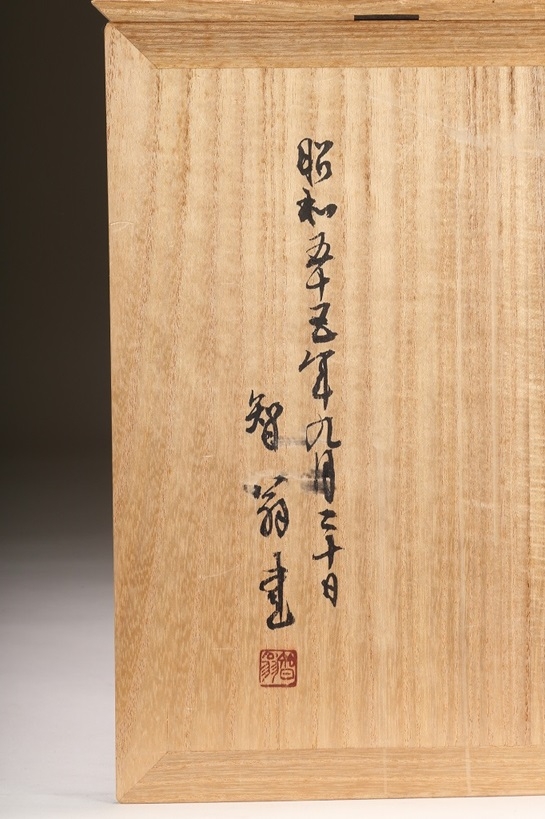 昭和五十五年九月二十日
智翁
智翁